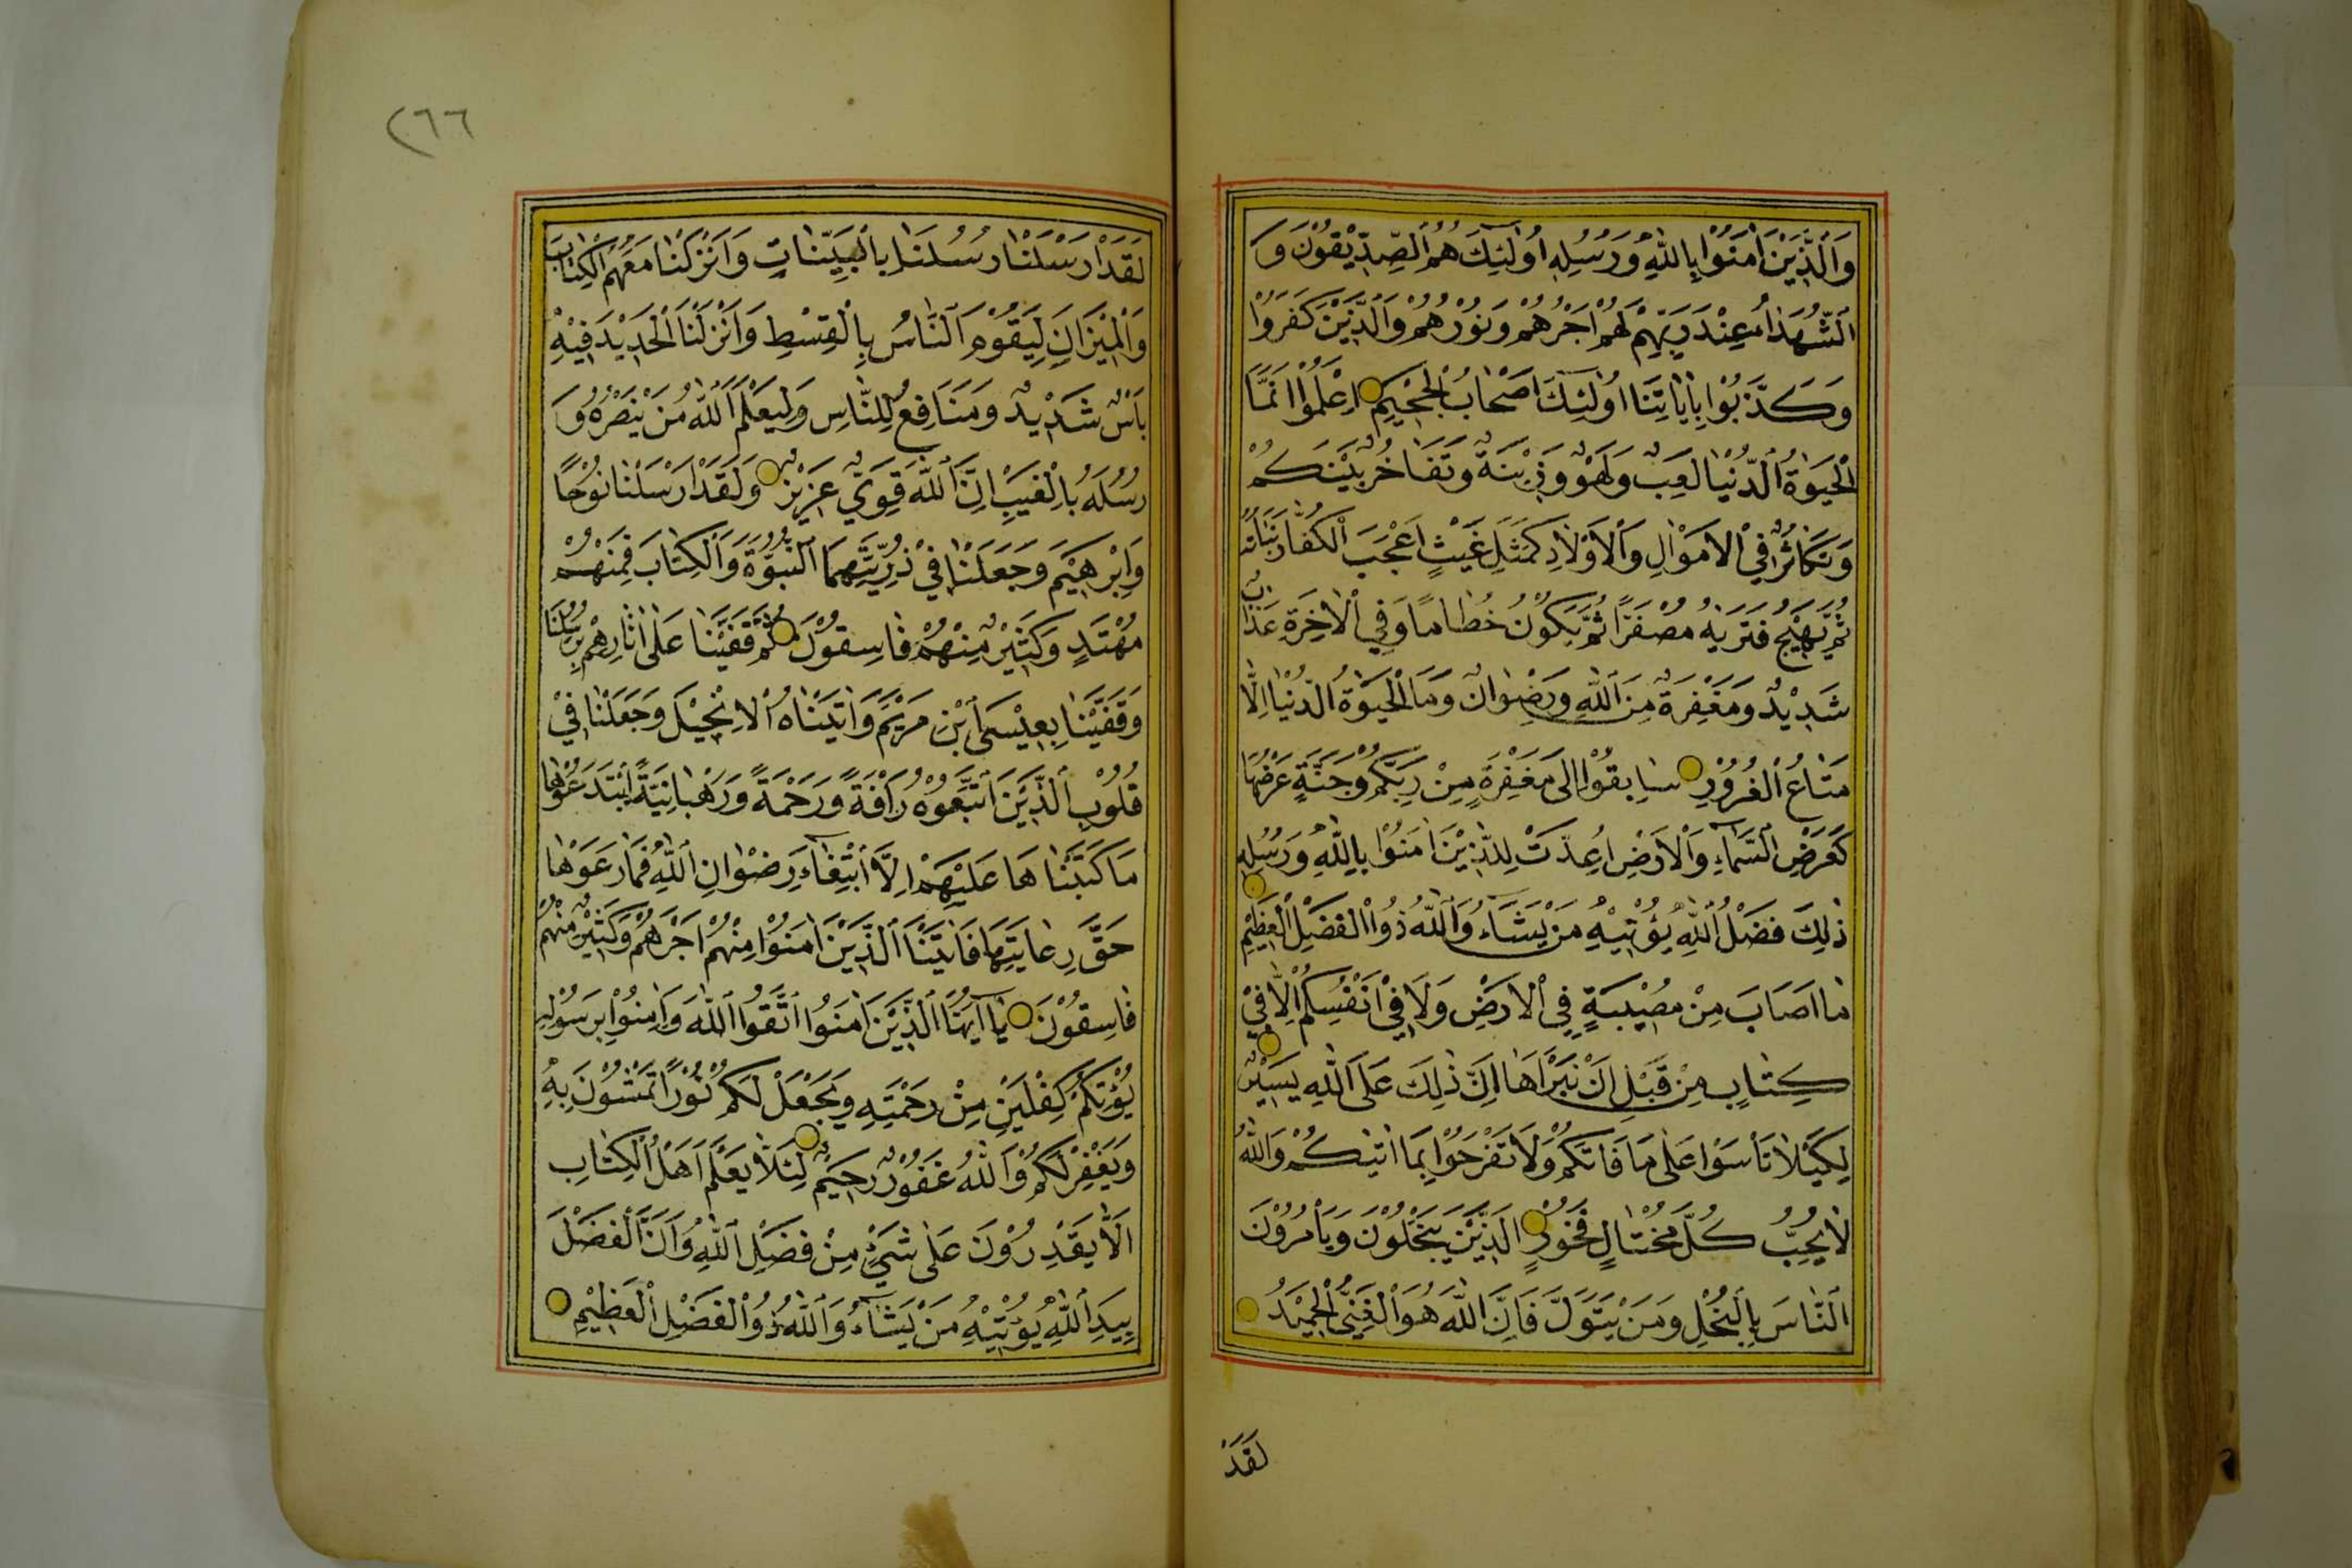 وَالَّذِيْنَ اٰمَنُوْا بِاللّٰهِ وَرَسُلِهِ اُولٰئِكَ هُمُ الصِّدِّيْقُوْنَ وَ
الشُّهَدَاءُ عِنْدَ رَبِّهِمْ لَهُمْ اَجْرُهُمْ وَنُوْرُهُمْ وَالَّذِيْنَ كَفَرُوْا
وَكَذَّبُوْا بِاٰيَاتِنَا اُولٰئِكَ اَصْحَابُ الْجَحِيْمِ اِعْلَمُوْا اَنَّمَا
الْحَيٰوةُ الدُّنْيَا لَعِبٌ وَلَهْوٌ وَزِيْنَةٌ وَتَفَاخُرٌ بَيْنَكُمْ
وَتَكَاثُرٌ فِي الْاَمْوَالِ وَالْاَوْلَادِ كَمَثَلِ غَيْثٍ اَعْجَبَ الْكُفَّارَ نَبَاتُهُ
ثُمَّ يَهِيْجُ فَتَرٰيهُ مُصْفَرًّا ثُمَّ يَكُوْنُ حُطَامًا وَفِي الْاٰخِرَةِ عَذَابٌ
شَدِيْدٌ وَمَغْفِرَةٌ مِنَ اللّٰهِ وَرِضْوَانٌ وَمَا الْحَيٰوةُ الدُّنْيَا اِلَّا
مَتَاعُ الْغُرُوْرِ سَابِقُوْا اِلٰى مَغْفِرَةٍ مِنْ رَبِّكُمْ وَجَنَّةٍ عَرْضُهَا
كَعَرْضِ السَّمَاءِ وَالْاَرْضِ اُعِدَّتْ لِلَّذِيْنَ اٰمَنُوْا بِاللّٰهِ وَرُسُلِهِ
ذٰلِكَ فَضْلُ اللّٰهِ يُؤْتِيْهِ مَنْ يَشَاءُ وَاللّٰهُ ذُوا الْفَضْلِ الْعَظِيْمِ
مَا اَصَابَ مِنْ مُصِيْبَةٍ فِي الْاَرْضِ وَلَا فِيْ اَنْفُسِكُمْ اِلَّا فِيْ
كِتَابٍ مِنْ قَبْلِ اَنْ نَبْرَاَهَا اِنَّ ذٰلِكَ عَلَى اللّٰهِ يَسِيْرٌ
لِكَيْلَا تَأْسَوْا عَلٰى مَا فَاتَكُمْ وَلَا تَفْرَحُوْا بِمَا اٰتٰيكُمْ وَاللّٰهُ
لَا يُحِبُّ كُلَّ مُخْتَالٍ فَخُوْرٍ الَّذِيْنَ يَبْخَلُوْنَ وَيَأْمُرُوْنَ
النَّاسَ بِالْبُخْلِ وَمَنْ يَتَوَلَّ فَاِنَّ اللّٰهَ هُوَ الْغَنِيُّ الْحَمِيْدُ
لَقَدْ
٢٦٦
لَقَدْ اَرْسَلْنَا رُسُلَنَا بِالْبَيِّنَاتِ وَاَنْزَلْنَا مَعَهُمُ الْكِتَابَ
وَالْمِيْزَانَ لِيَقُوْمَ النَّاسُ بِالْقِسْطِ وَاَنْزَلْنَا الْحَدِيْدَ فِيْهِ
بَأْسٌ شَدِيْدٌ وَمَنَافِعُ لِلنَّاسِ وَلِيَعْلَمَ اللّٰهُ مَنْ يَنْصُرُهُ وَ
رُسُلَهُ بِالْغَيْبِ اِنَّ اللّٰهَ قَوِيٌّ عَزِيْزٌ وَلَقَدْ اَرْسَلْنَا نُوْحًا
وَاِبْرٰهِيْمَ وَجَعَلْنَا فِيْ ذُرِّيَّتِهِمَا النُّبُوَّةَ وَالْكِتَابَ فَمِنْهُمْ
مُهْتَدٍ وَكَثِيْرٌ مِنْهُمْ فَاسِقُوْنَ ثُمَّ قَفَّيْنَا عَلٰى اٰثَارِهِمْ بِرُسُلِنَا
وَقَفَّيْنَا بِعِيْسَى ابْنِ مَرْيَمَ وَاٰتَيْنَاهُ الْاِنْجِيْلَ وَجَعَلْنَا فِيْ
قُلُوْبِ الَّذِيْنَ اتَّبَعُوْهُ رَأْفَةً وَرَحْمَةً وَرَهْبَانِيَّةً ابْتَدَعُوْهَا
مَا كَتَبْنَاهَا عَلَيْهِمْ اِلَّا ابْتِغَاءَ رِضْوَانِ اللّٰهِ فَمَا رَعَوْهَا
حَقَّ رِعَايَتِهَا فَاٰتَيْنَا الَّذِيْنَ اٰمَنُوْا مِنْهُمْ اَجْرَهُمْ وَكَثِيْرٌ مِنْهُمْ
فَاسِقُوْنَ يَا اَيُّهَا الَّذِيْنَ اٰمَنُوا اتَّقُوا اللّٰهَ وَاٰمِنُوْا بِرَسُوْلِهِ
يُؤْتِكُمْ كِفْلَيْنِ مِنْ رَحْمَتِهِ وَيَجْعَلْ لَكُمْ نُوْرًا تَمْشُوْنَ بِهِ
وَيَغْفِرْ لَكُمْ وَاللّٰهُ غَفُوْرٌ رَحِيْمٌ لِئَلَّا يَعْلَمَ اَهْلُ الْكِتَابِ
اَلَّا يَقْدِرُوْنَ عَلٰى شَيْءٍ مِنْ فَضْلِ اللّٰهِ وَاَنَّ الْفَضْلَ
بِيَدِ اللّٰهِ يُؤْتِيْهِ مَنْ يَشَاءُ وَاللّٰهُ ذُوْ الْفَضْلِ الْعَظِيْمِ